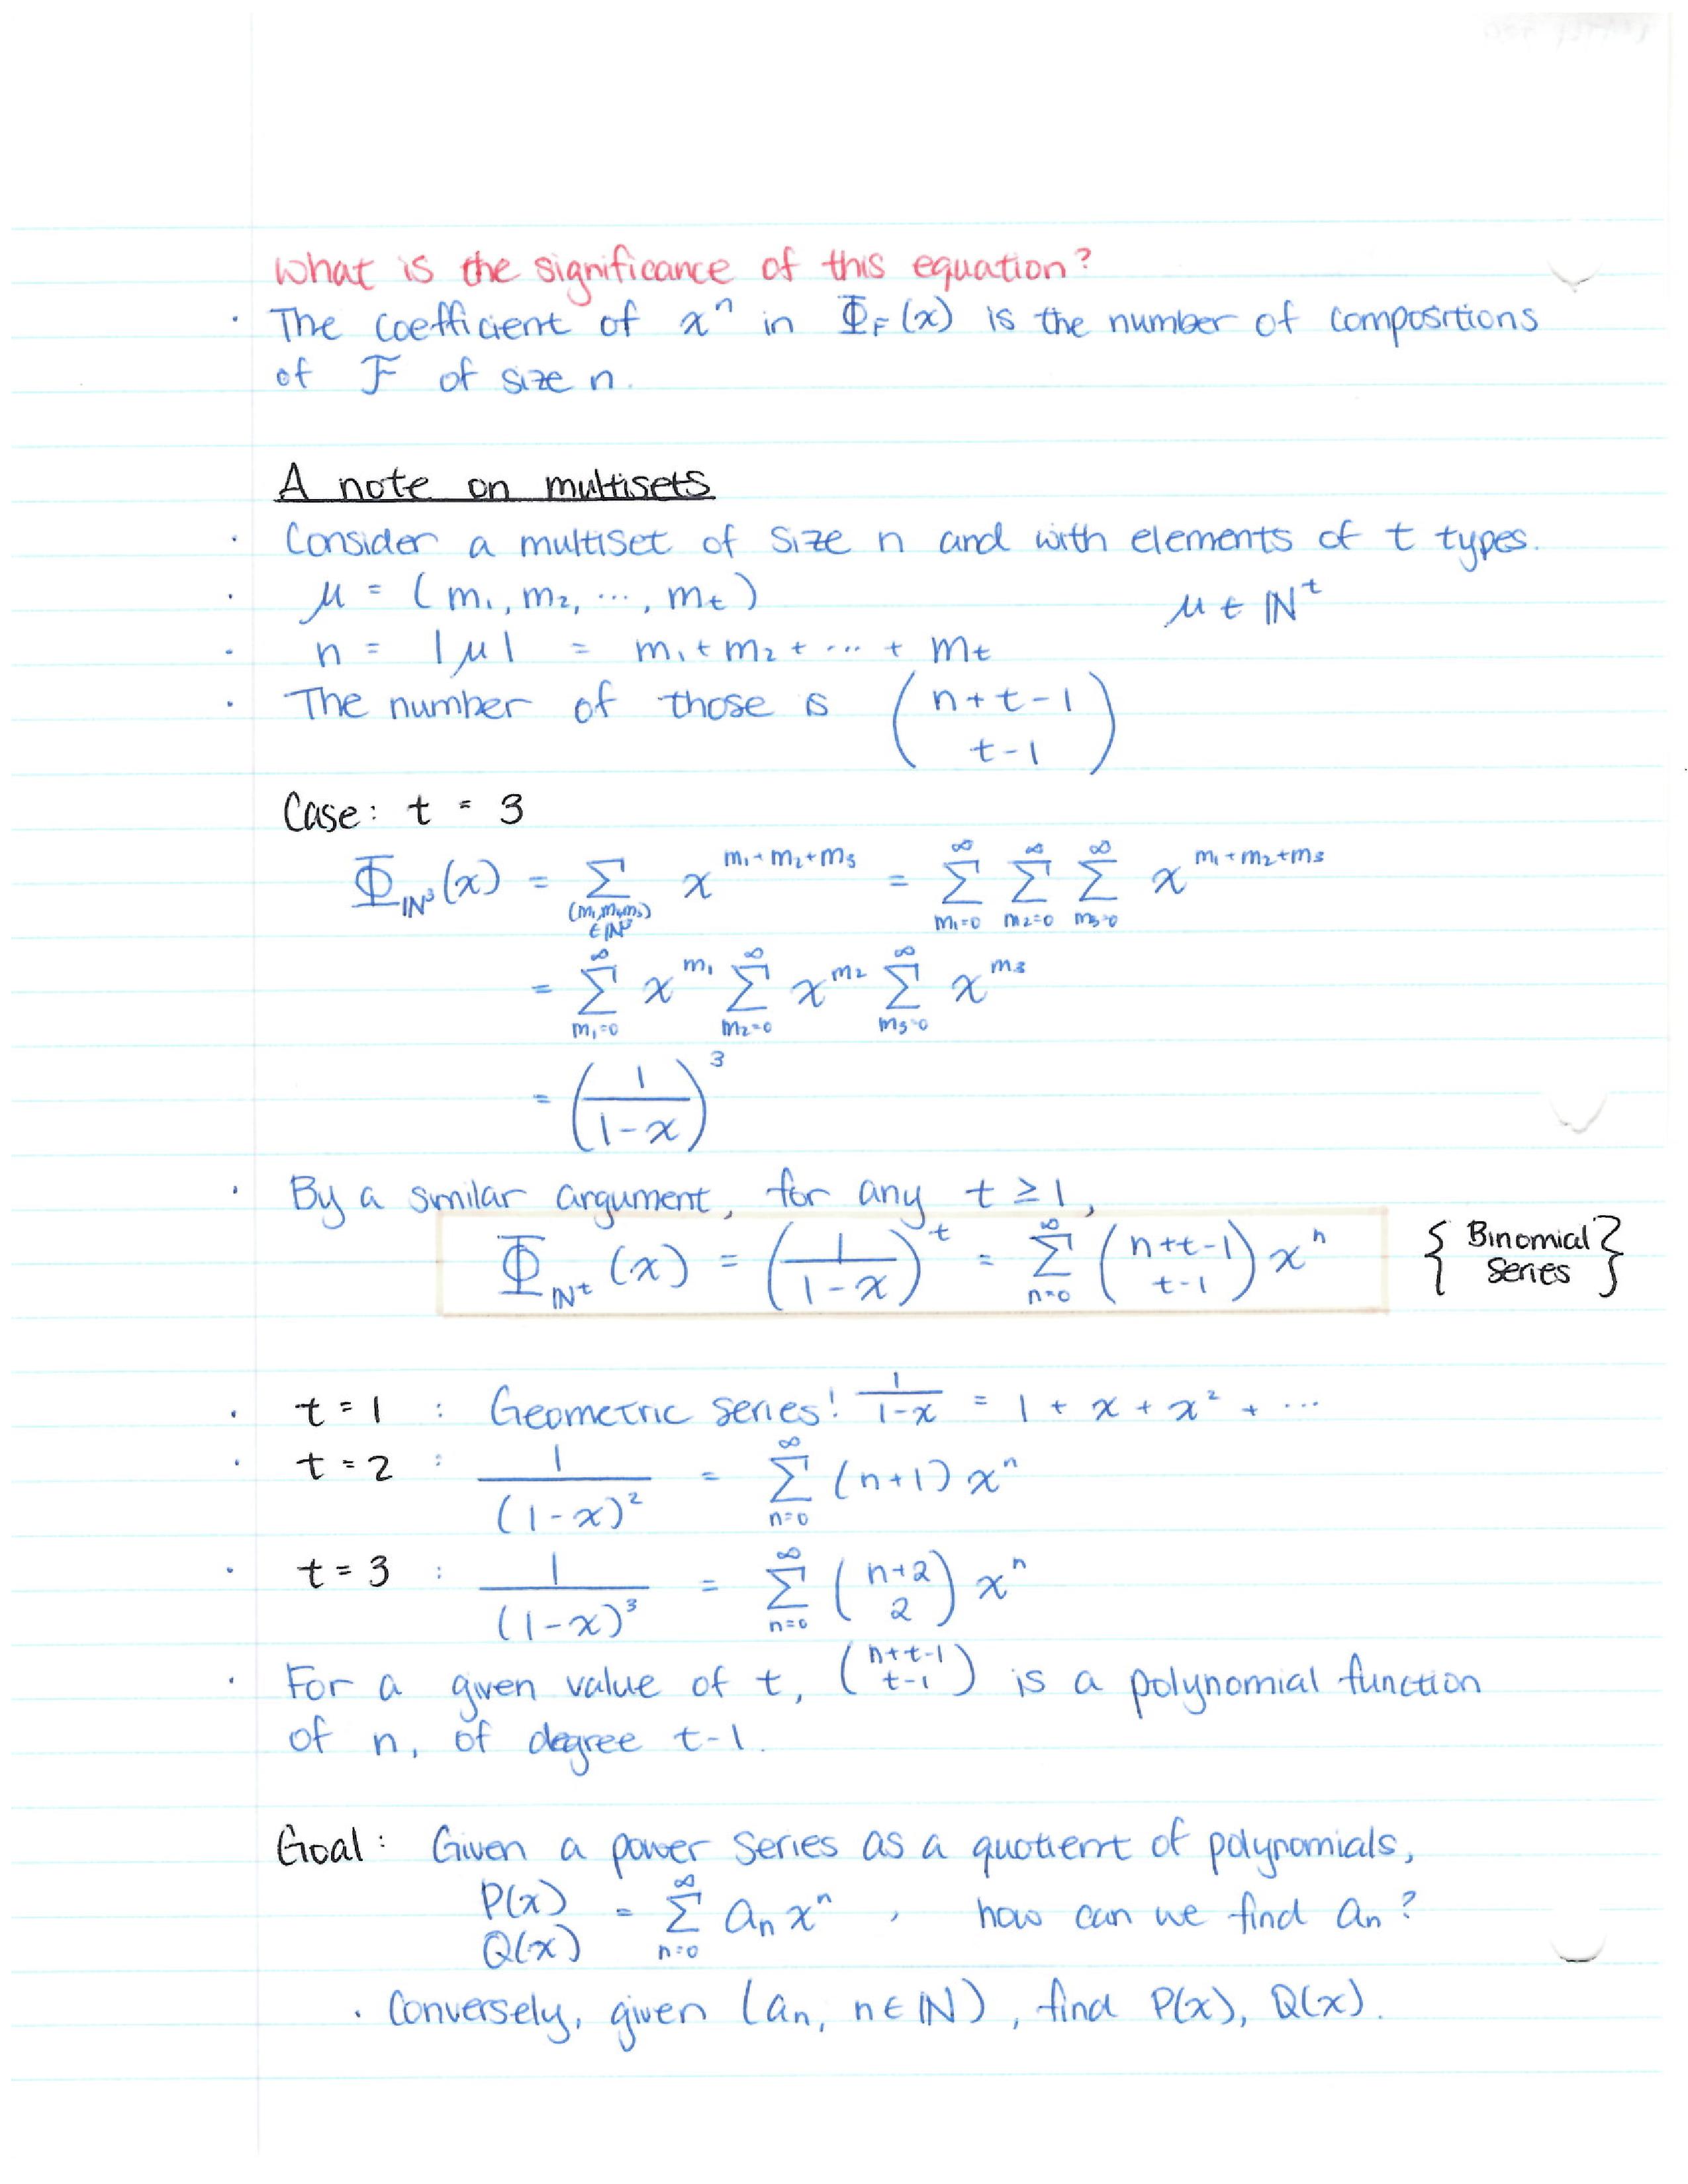 What is the significance of this equation?
· The coefficient of xⁿ in Φ_F(x) is the number of compositions
of F of size n.
A note on multisets
· Consider a multiset of size n and with elements of t types.
· μ = (m₁, m₂, ..., m_t)    μ ∈ ℕ^t
· n = |μ| = m₁ + m₂ + ... + m_t
· The number of those is (n+t-1 choose t-1)
Case: t = 3
Φ_ℕ³(x) = Σ_{(m₁,m₂,m₃) ∈ ℕ³} x^{m₁+m₂+m₃} = Σ_{m₁=0}^∞ Σ_{m₂=0}^∞ Σ_{m₃=0}^∞ x^{m₁+m₂+m₃}
= Σ_{m₁=0}^∞ x^{m₁} Σ_{m₂=0}^∞ x^{m₂} Σ_{m₃=0}^∞ x^{m₃}
= (1/(1-x))³
· By a similar argument, for any t ≥ 1,
Φ_ℕ^t(x) = (1/(1-x))^t = Σ_{n=0}^∞ (n+t-1 choose t-1) xⁿ    { Binomial Series }
· t = 1 : Geometric series! 1/(1-x) = 1 + x + x² + ...
· t = 2 : 1/(1-x)² = Σ_{n=0}^∞ (n+1) xⁿ
· t = 3 : 1/(1-x)³ = Σ_{n=0}^∞ (n+2 choose 2) xⁿ
· For a given value of t, (n+t-1 choose t-1) is a polynomial function
of n, of degree t-1.
Goal: Given a power series as a quotient of polynomials,
P(x)/Q(x) = Σ_{n=0}^∞ aₙxⁿ, how can we find aₙ?
· Conversely, given (aₙ, n ∈ ℕ), find P(x), Q(x).